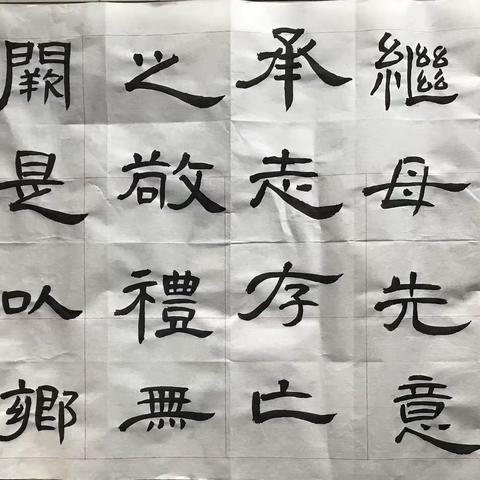 繼母先意
承志存亡
之敬禮無
闕是以鄉